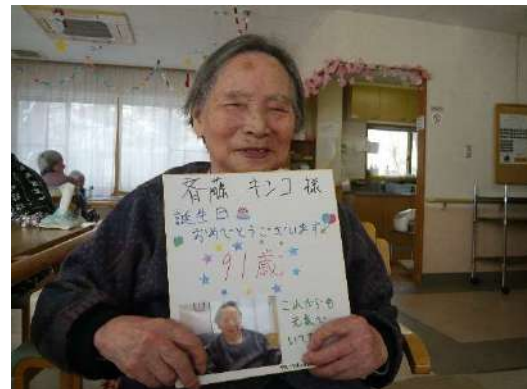 斉藤 キンコ 様
誕生日
おめでとうございます。
91歳
これからも
元気で
いて